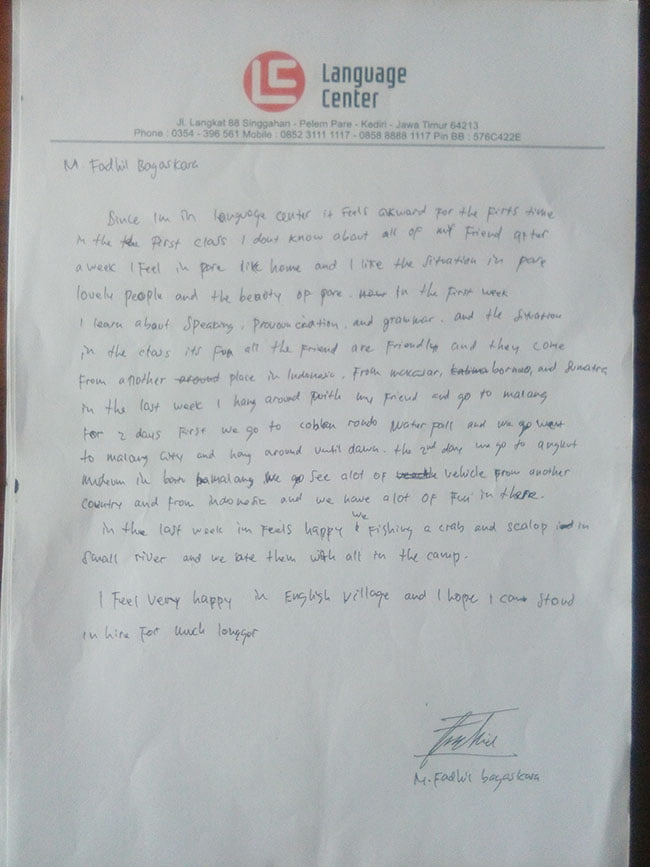 LC Language
Center
Jl. Langkat 88 Singgahan - Pelem Pare - Kediri - Jawa Timur 64213
Phone : 0354 - 396 561 Mobile : 0852 3111 1117 - 0858 8888 1117 Pin BB : 576C422E
M. Fadhil Bagaskara
Since Im in language center it Feels akward for the firts time
in the the First class I dont know about all of my Friend after
a week I Feel in pare like home and I like the situation in pare
lovely people and the beauty of pare. in the first week
I learn about Speaking, Pronounciation, and grammar. and the Situation
in the class its Fun all the Friend are Friendly and they come
From another around place in Indonesia. From makasar, borneo, and Sumatra
in the last week I hang around with my Friend and go to malang
For 2 days First we go to coban rondo Water Fall and we go
to malang city and hang around until dawn. the 2nd day we go to angkut
museum in malang we go see alot of vehicle From another
country and From indonesia and we have alot of Fun in there.
in the last week im Feels happy we Fishing a crab and scalop in
Small river and we ate them with all in the camp.
I Feel very happy in English Village and I hope I can Stand
in hire For much longger
M. Fadhil bagaskara